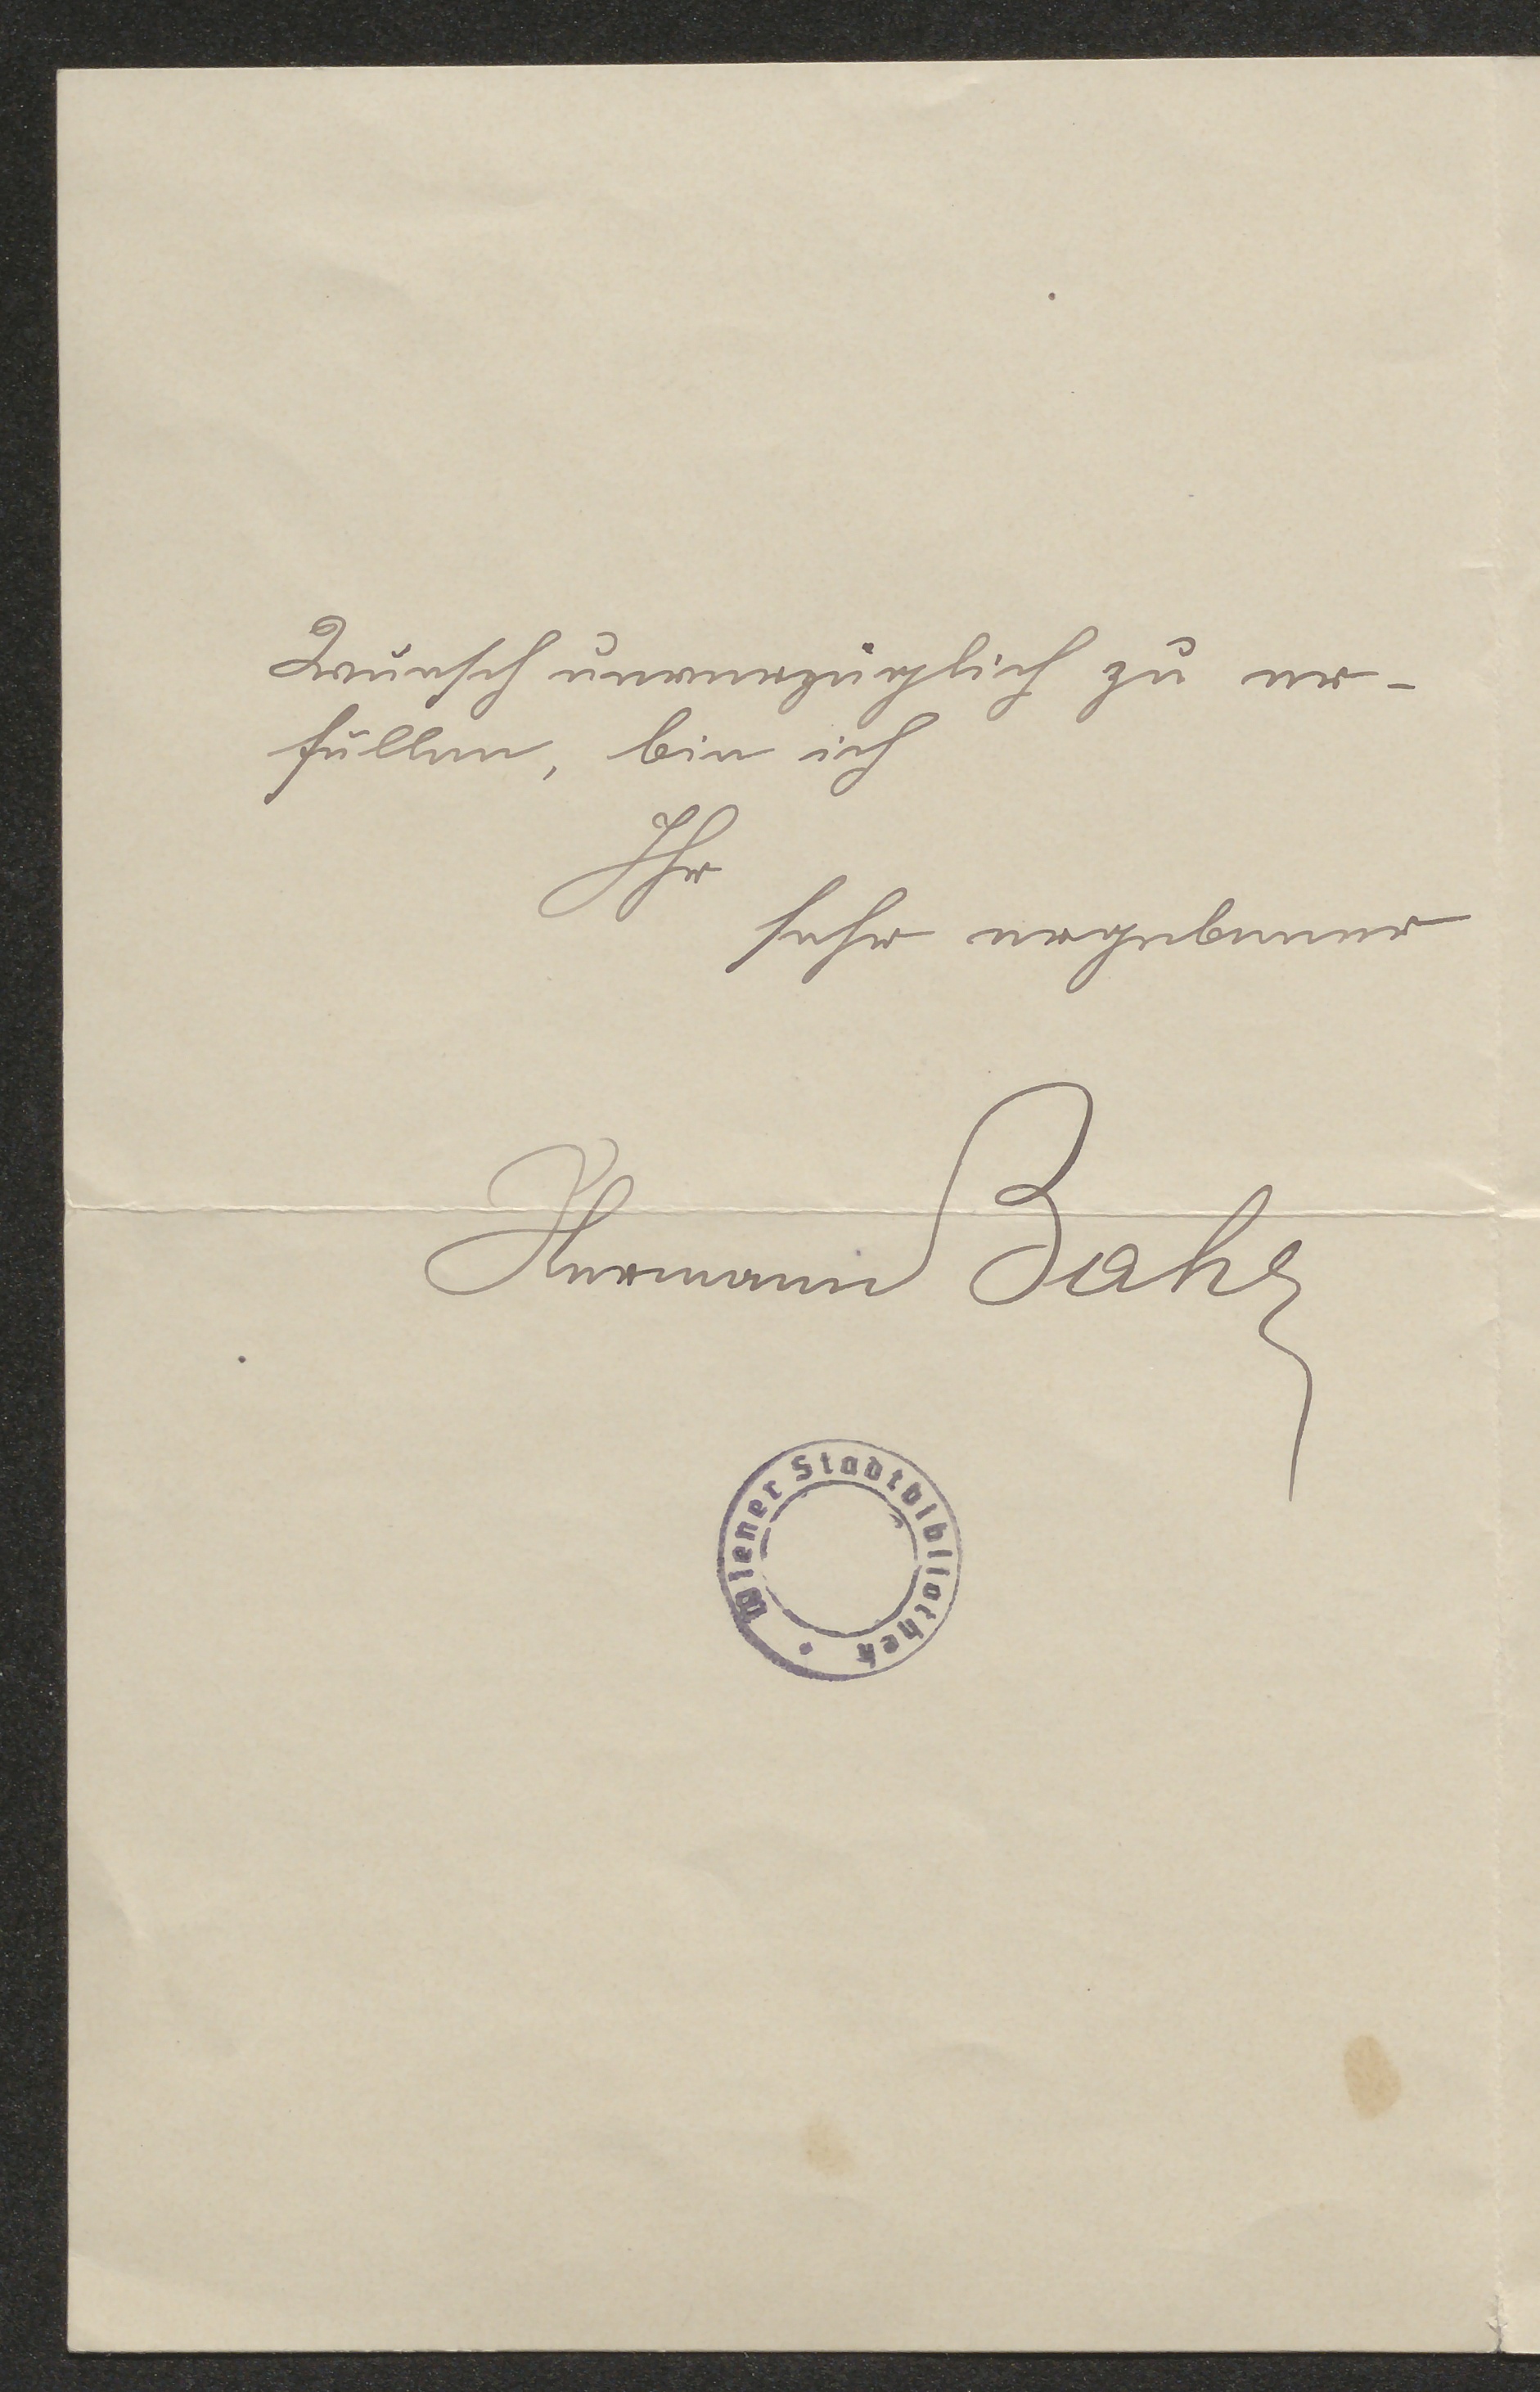 Wunsch unverzüglich zu er-
füllen, bin ich
Ihr
sehr ergebener
Hermann Bahr
Wiener Stadtbibliothek